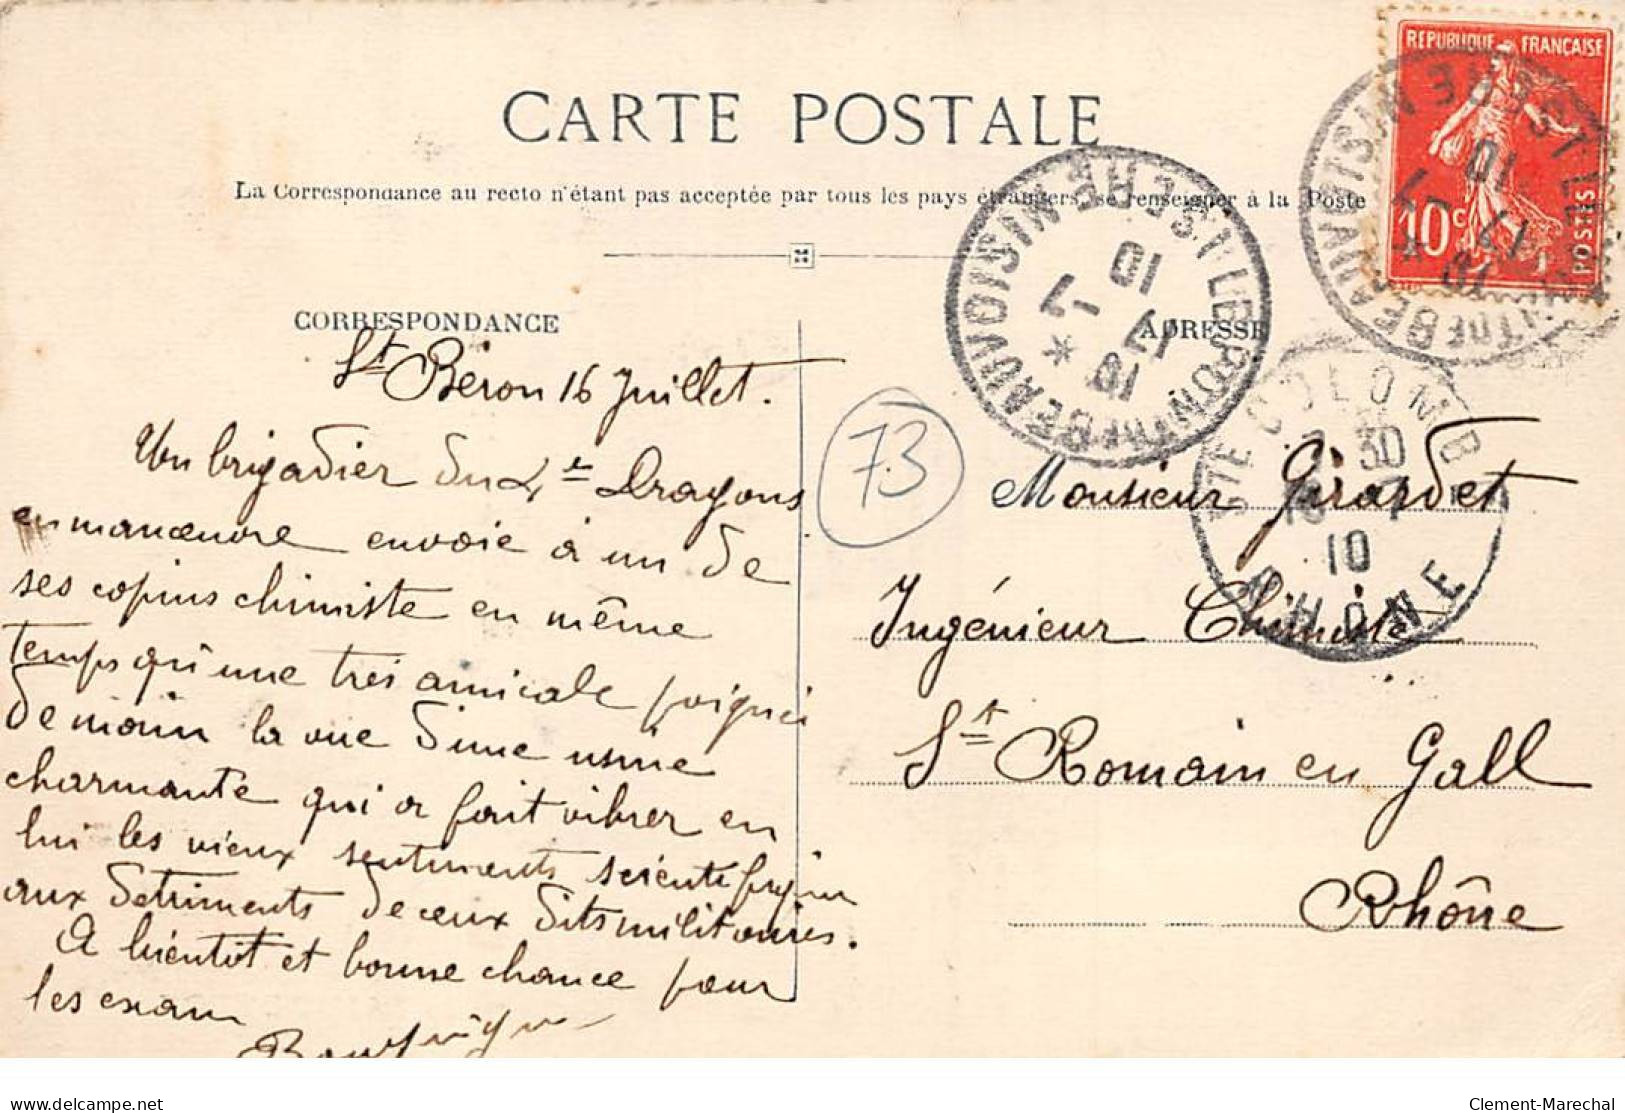 CARTE POSTALE
La Correspondance au recto n'étant pas acceptée par tous les pays étrangers, se renseigner à la Poste
CORRESPONDANCE
St Béron 16 Juillet.
Un brigadier du 4e Dragons
en manœuvre envoie à un de
ses copins chimiste en même
temps qu'une très amicale poignée
de main la vue d'une usine
charmante qui a fait vibrer en
lui les vieux sentiments scientifiques
aux détriments de ceux dits militaires.
A bientôt et bonne chance pour
les exam
73
ADRESSE
Monsieur Girardet
Ingénieur Chimiste
St Romain en Gall
Rhône
REPUBLIQUE FRANÇAISE
10c
POSTES
LE PONT DE BEAUVOISIN ISERE
10
17 - 7
10
STE COLOMBE
30
10
RHONE
delcampe.net
Clement-Marechal